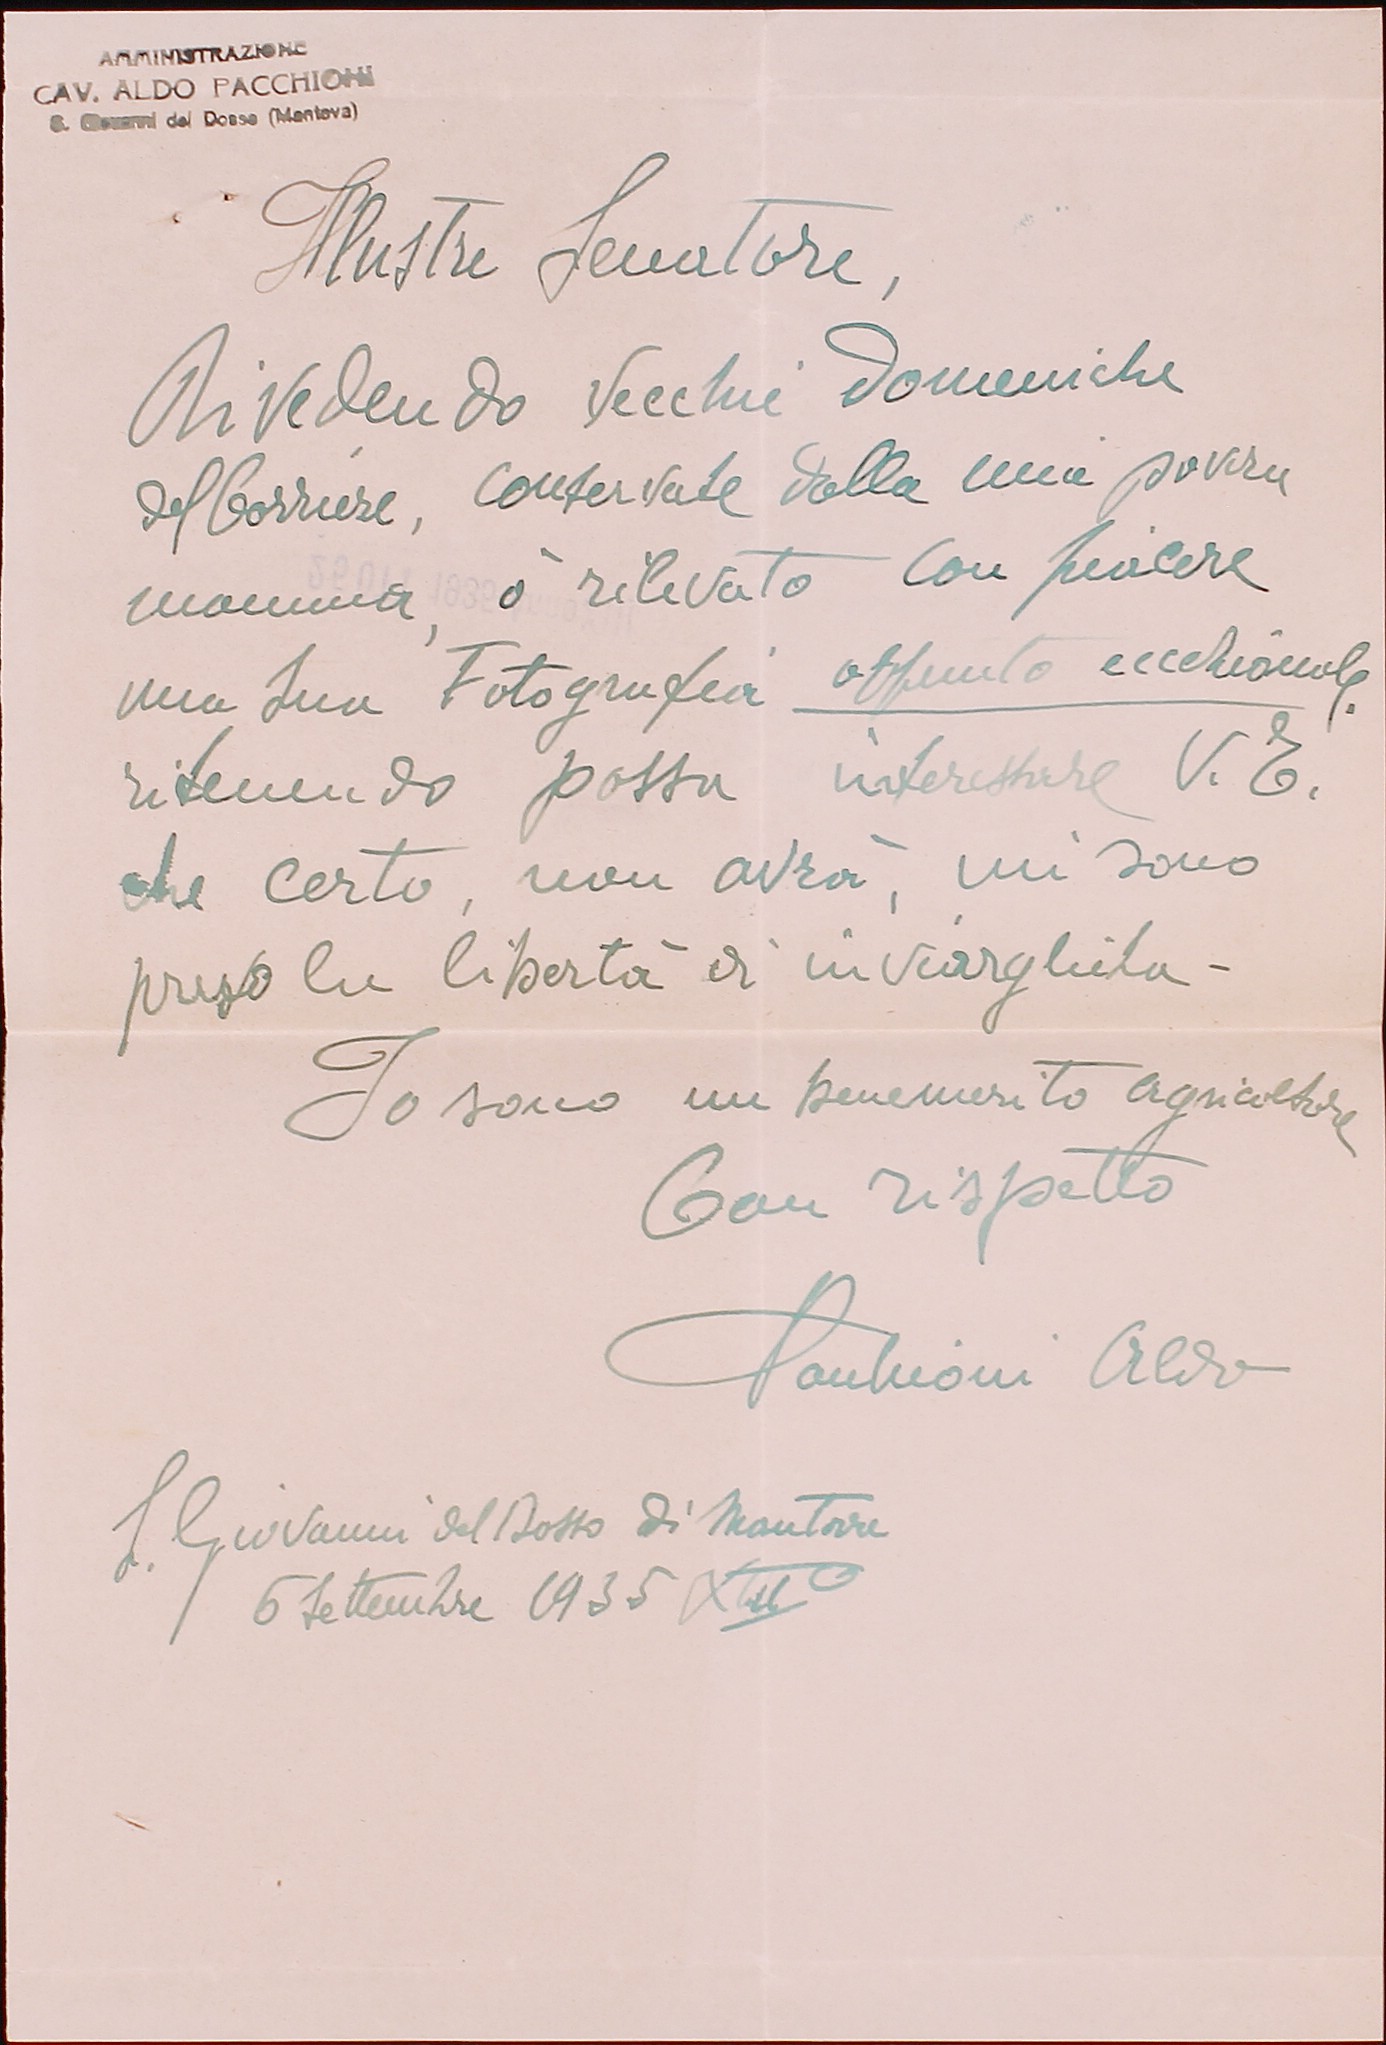 AMMINISTRAZIONE
CAV. ALDO PACCHIONI
S. Giovanni del Dosso (Mantova)
Illustre Senatore,
Rivedendo vecchie Domeniche
del Corriere, conservate dalla mia povera
mamma, ò rilevato con piacere
una sua Fotografia
ritenendo possa interessare V. E.
che certo, non avrà, mi sono
preso la libertà di inviarglila -
Io sono un benemerito agricoltore
Con rispetto
Pacchioni Aldo
S. Giovanni del Dosso di Mantova
6 Settembre 1935 XIII°